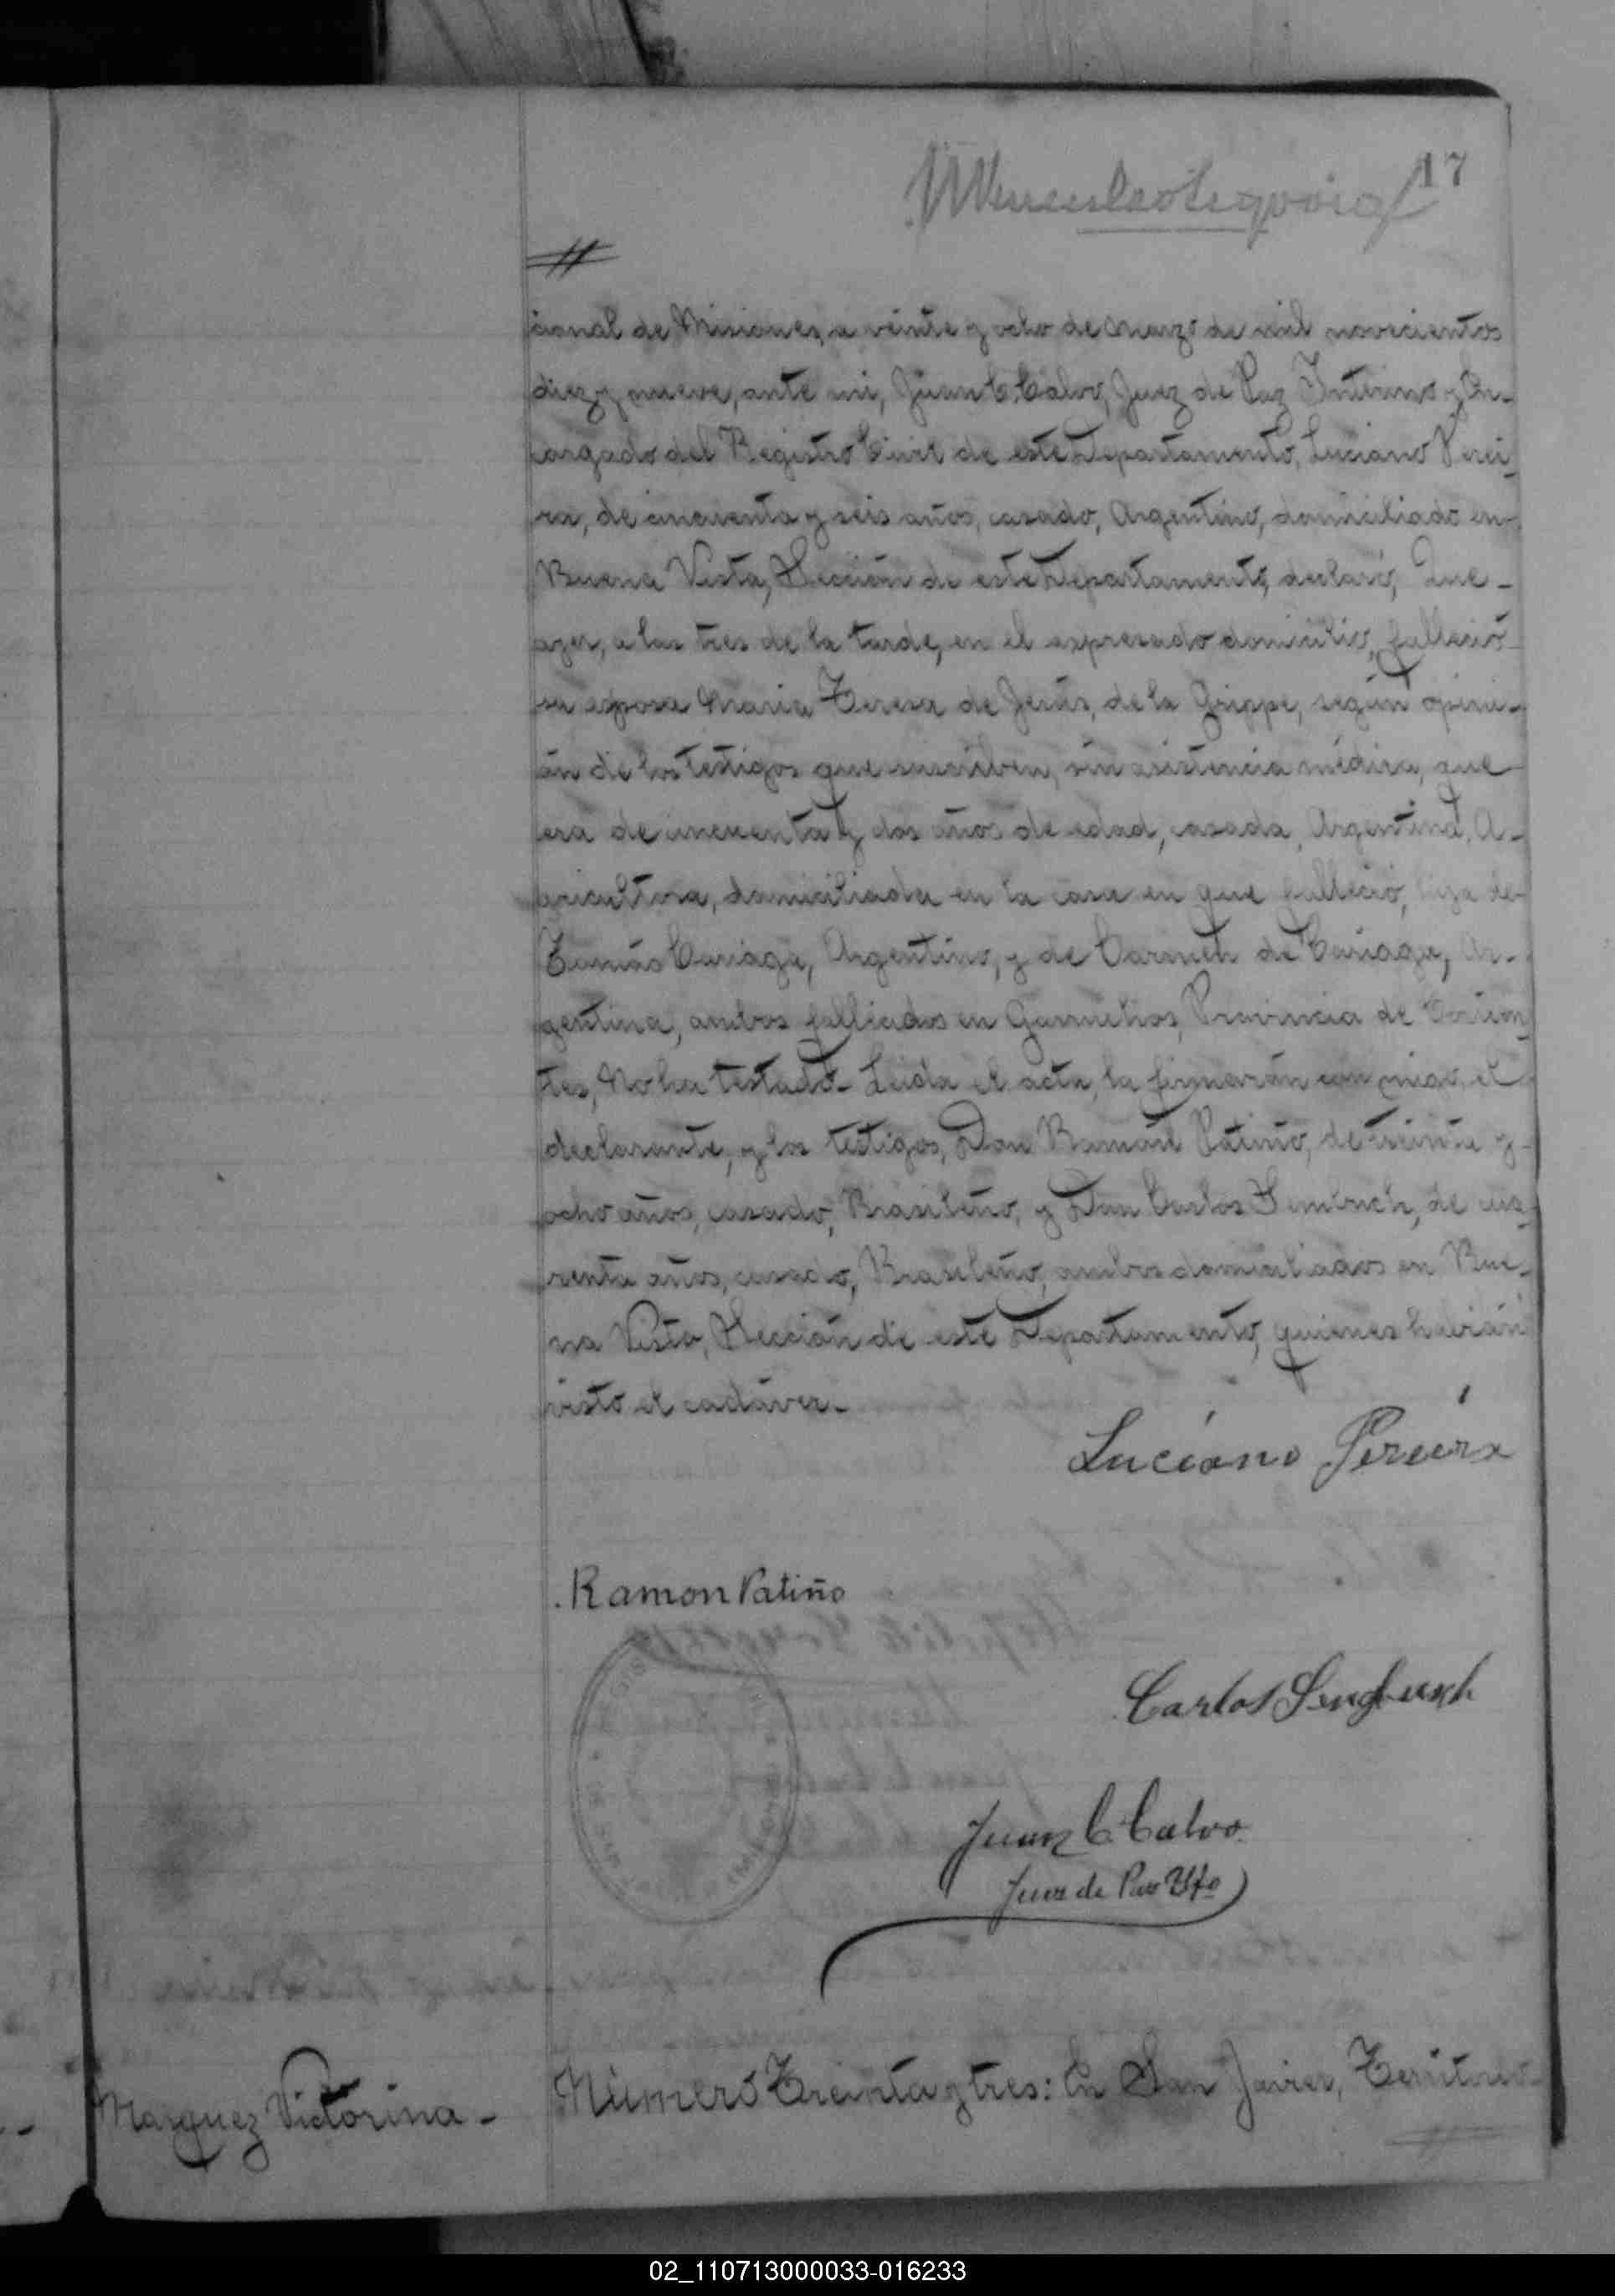 17
cional de Misiones, a veinte y ocho de Marzo de mil novecientos
diez y nueve, ante mi, Juan C. Calvo, Juez de Paz Interino y En-
cargado del Registro Civil de este Departamento, Luciano Perei-
ra, de cincuenta y seis años, casado, Argentino, domiciliado en
Buena Vista, Sección de este Departamento, declaró, Que-
ayer, a las tres de la tarde, en el expresado domicilio, falleció
su esposa Maria Teresa de Jesús, de la Grippe, según opini-
ón de los testigos que suscriben, sin asistencia médica, que
era de cincuenta y dos años de edad, casada, Argentina, A-
gricultora, domiciliada en la casa en que falleció, hija de
Tomás Cariaga, Argentino, y de Carmen de Cariaga, Ar-
gentina, ambos falliados en Garruchos, Provincia de Corrien-
tes, No ha testado. Leida el acta, la firmarón con migo, el
declarante, y los testigos, Don Ramón Patiño, de treinta y
ocho años, casado, Brasileño, y Don Carlos de cua-
renta años, casado, Brasileño, ambos domiciliados en Bue-
na Vista, Sección de este Departamento, quienes habían
visto el cadáver.
Luciano Pereira
Ramon Patiño
Carlos
Juan C. Calvo
Juez de Paz
Marquez Victorina-
Número Treinta y tres: En San Javier, Territorio
02_110713000033-016233